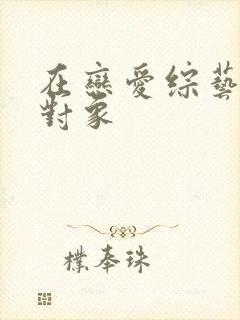 在戀愛綜藝
對象
樸奉珠